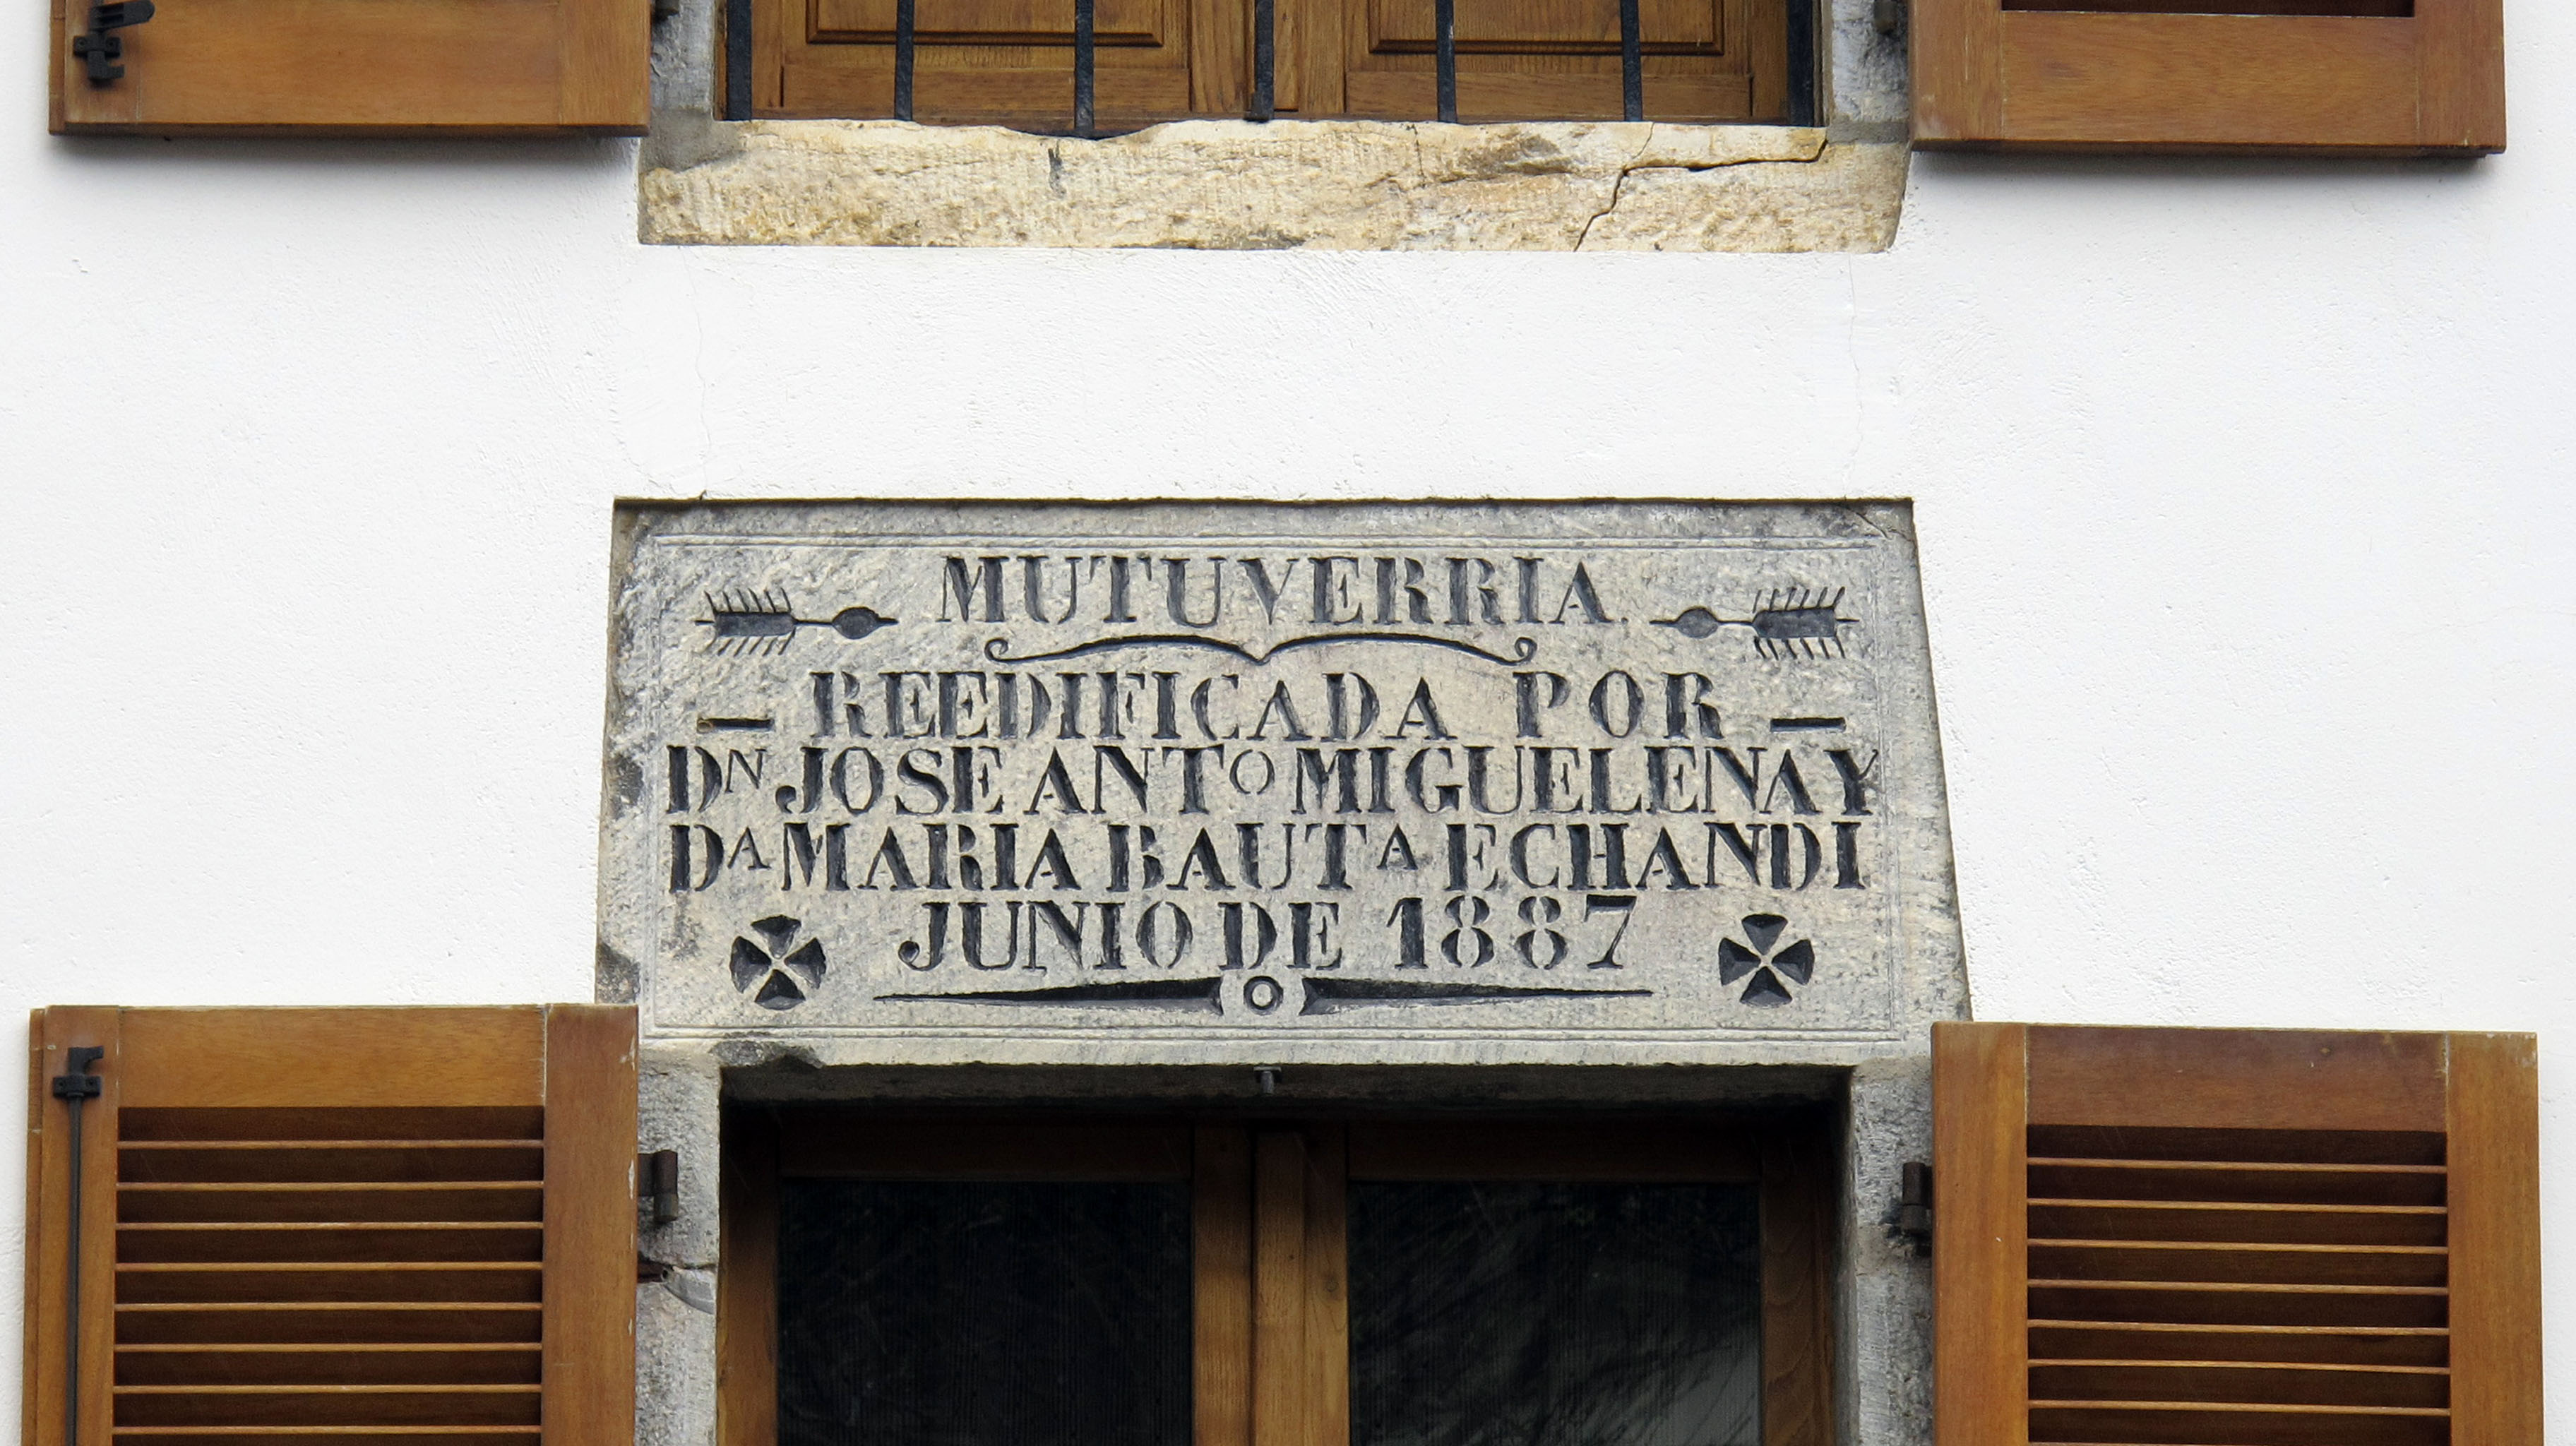 MUTUVERRIA.
— REEDIFICADA POR —
DN JOSE ANTO MIGUELENA Y
DA MARIA BAUTA ECHANDI
JUNIO DE 1887